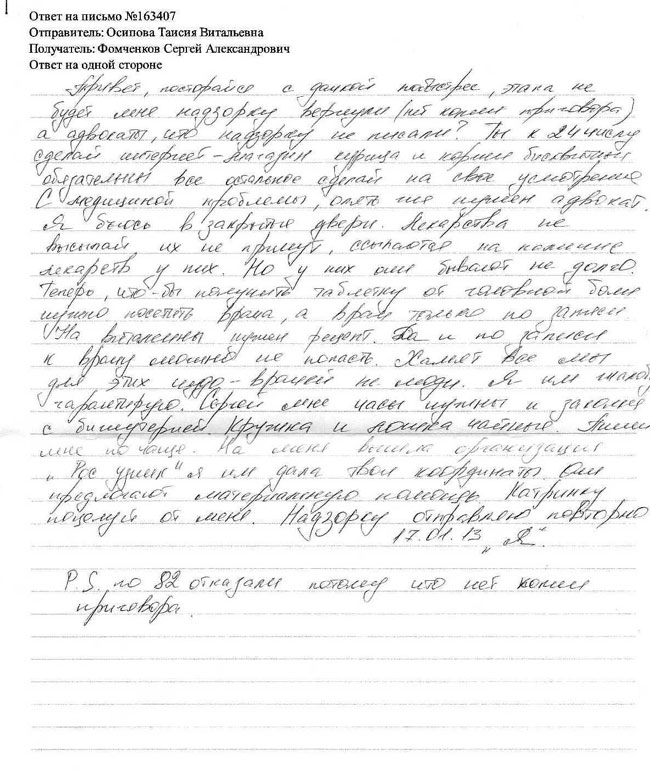 Ответ на письмо №163407
Отправитель: Осипова Таисия Витальевна
Получатель: Фомченков Сергей Александрович
Ответ на одной стороне
Привет, постарайся с дачкой побыстрее, этапа не
будет мне надзорку вернули (нет копии приговора)
а адвокаты, что надзорку не писали? Ты к 24 числу
сделай интернет-магазин курица и корм
обязательны все остальное сделай на свое усмотрение
С медициной проблемы, опять же нужен адвокат.
Я бьюсь в закрытые двери. Лекарства не
высылай их не примут, ссылаются на наличие
лекарств у них. Но у них они бывают не долго.
Теперь, что-бы получить таблетку от головной боли
нужно посетить врача, а врач только по записи
На витамины нужен рецепт. Да и по записи
к врачу можно не попасть. Хамят все мы
для этих чудо-врачей не люди. Я им жалобу
гарантирую. Сергей мне часы нужны и заколка
с бижутерией. Кружка и ложка чайные. Пиши
мне по чаще. На меня вышла организация
„Рус узник" я им дала твои координаты. Они
предлагают материальную помощь. Катринку
поцелуй от меня. Надзорку отправляю повторно
17.01.13 „Я".
P.S. по 82 отказали потому что нет копии
приговора.